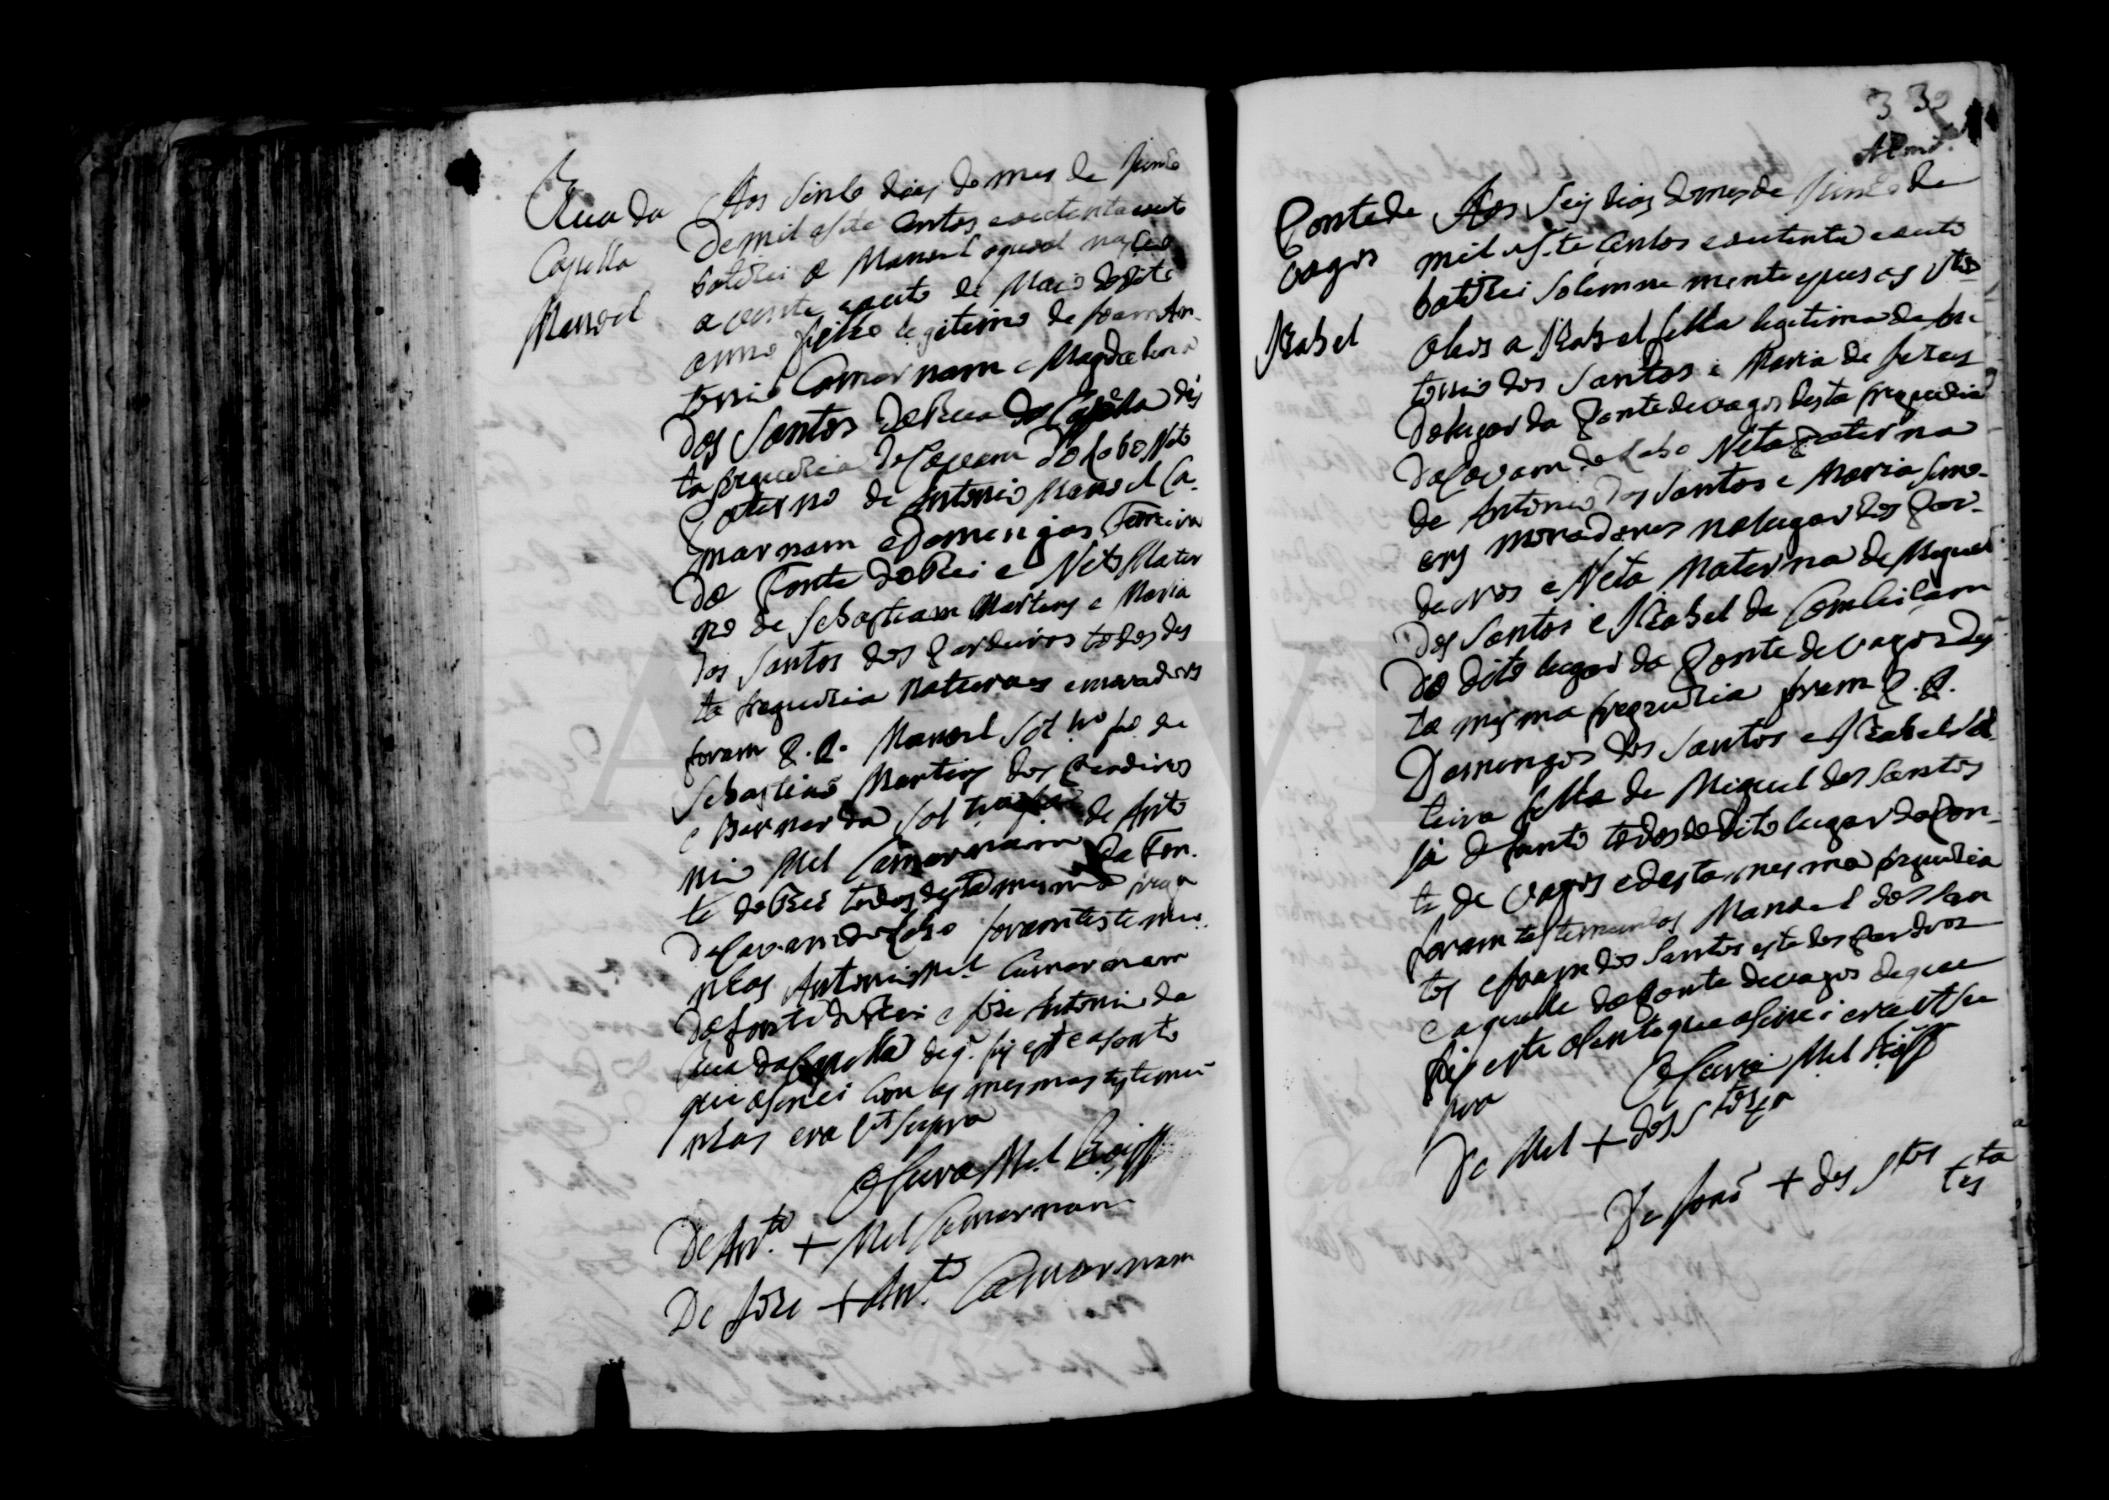 Rua da
Capella
Manoel
Aos sinco dias do mes de Junho
de mil e sete centos e outenta e outo
batizei a Manoel o qual nasceo
a vinte e outo de Maio do dito
anno filho legitimo de Joam An-
tonio Camarnam e Magdalena
dos Santos da Rua da Capella des
ta freguezia de Covam do Lobo Neto
Paterno de Antonio Manoel Ca-
marnam e Domingas Ferreira
da Fonte do Rei e Neto Mater
no de Sebastiam Martins e Maria
dos Santos dos Pardeiros todos des
ta freguezia naturaes e moradores
foram P. P. Manoel Solt.ro f.o de
Sebastiaõ Martins dos Pardeiros
e Bernarda Solteira de Anto
nio Mel Camarnam da Fon.
te do Rei todos desta mesma freg.a
de Covam do Lobo foram testemu-
nhas Antonio Mel Camarnam
da fonte do Rei e Joze Antonio da
Rua da Capella de q. fiz este asento
que asinei com as mesmas testemu-
nhas era ut supra
O Cura Mel
De Ant.o + Mel Camarnam
De Joze + Ant.to Camarnam
330
Ponte de
Vagos
Izabel
Aos seis dias do mes de Junho de
mil e sete centos e outenta e outo
batizei solemne mente e pus os s.tos
olios a Izabel filha legitima de An-
tonio dos Santos e Maria de Jezus
do lugar da Ponte de Vagos desta freguezia
de Covam do Lobo Neta Paterna
de Antonio dos Santos e Maria Simo-
ens moradores no lugar dos Par-
deiros e Neta Materna de Miguel
dos Santos e Izabel da Conceicam
do dito lugar da Ponte de Vagos des
ta mesma freguezia foram P. P.
Domingos dos Santos e Izabel Sol-
teira filha de Miguel dos Santos
ja defunto todos do dito lugar da Pon-
te de Vagos e desta mesma freguezia
foram testemunhas Manoel dos San
tos e Joam dos Santos este dos Pardeiros
e aquelle da Ponte de Vagos de que
fiz este asento que asinei era ut su
pra
O Cura Mel
De Mel + dos S.tos
De Joaõ + dos S.tos tes.ta